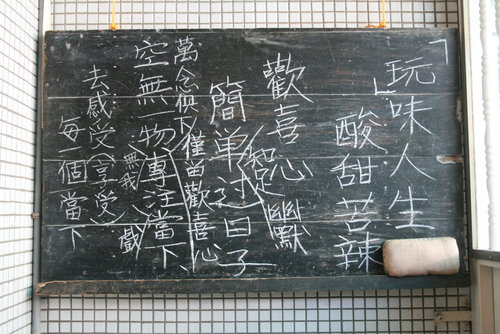 「玩味人生」
酸甜苦辣
歡喜心 幽默
知足
簡單过日子
萬念俱 僅留歡喜心
空無一物專注當下
（無我） 戲
去感受（享受）
每一個當下